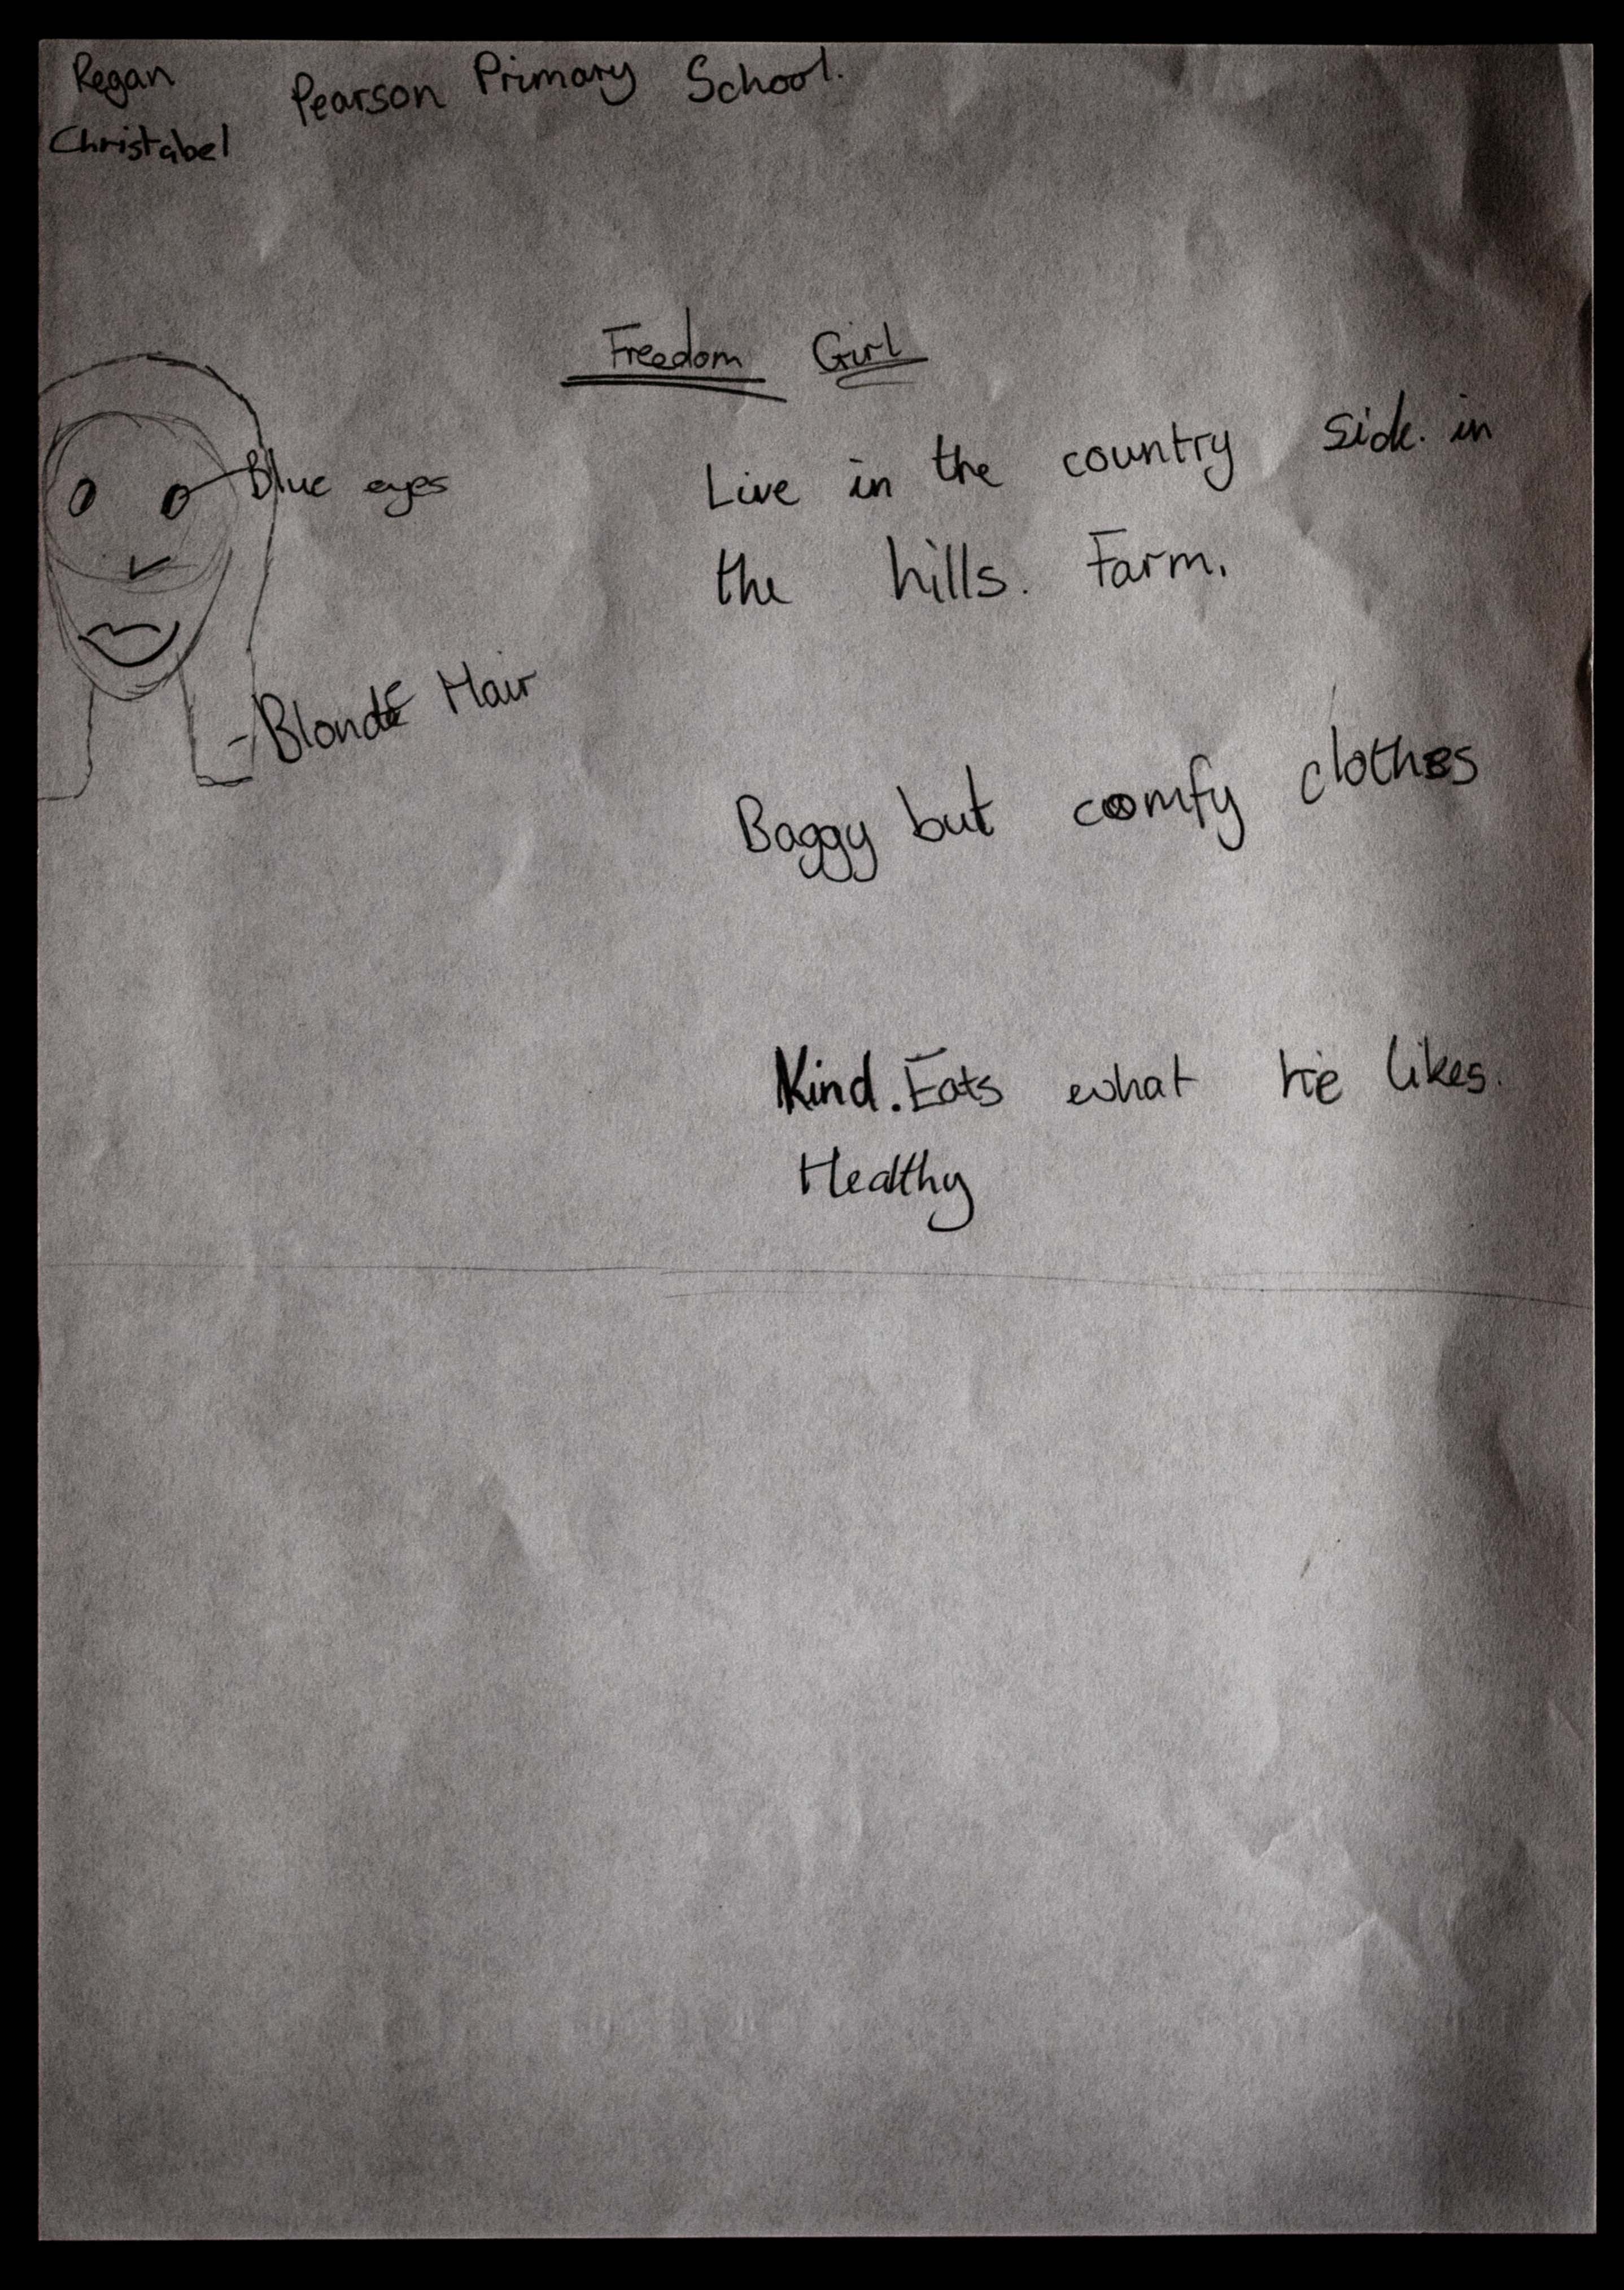 Regan
Christabel
Pearson Primary School.
Freedom Girl
Blue eyes
Blonde Hair
Live in the country side. in
the hills. Farm.
Baggy but comfy clothes
Kind. Eats what he likes.
Healthy